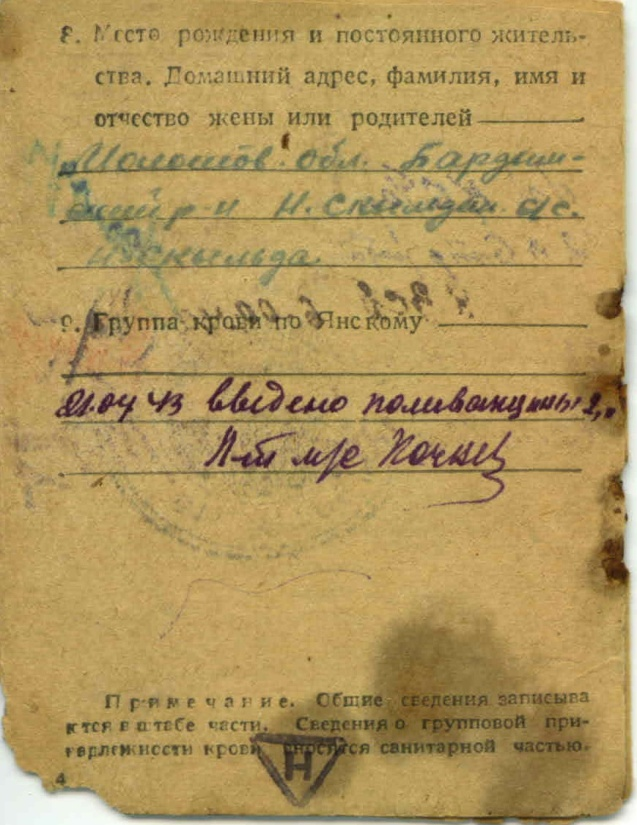 8. Место рождения и постоянного житель-
ства. Домашний адрес, фамилия, имя и
отчество жены или родителей
Молотов. обл. Бардым-
ский р-н Н. с/с.
9. Группа крови по Янскому
21.04 43 введено поливакцины 2,0
Л-т м/с
Примечание. Общие сведения записыва
ются в штабе части. Сведения о групповой при-
надлежности крови вносятся санитарной частью.
Н
4